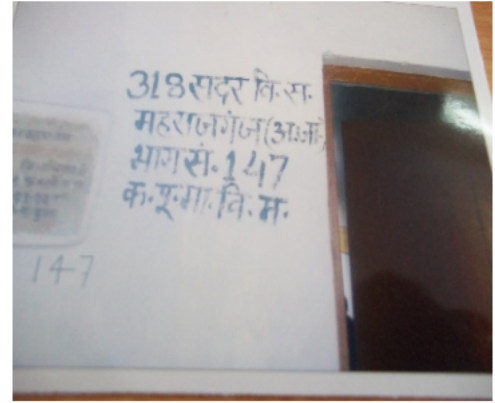 318 सदर वि.स.
महराजगंज (अ.जा.)
भाग सं. 147
क.पू.मा.वि.म.
147